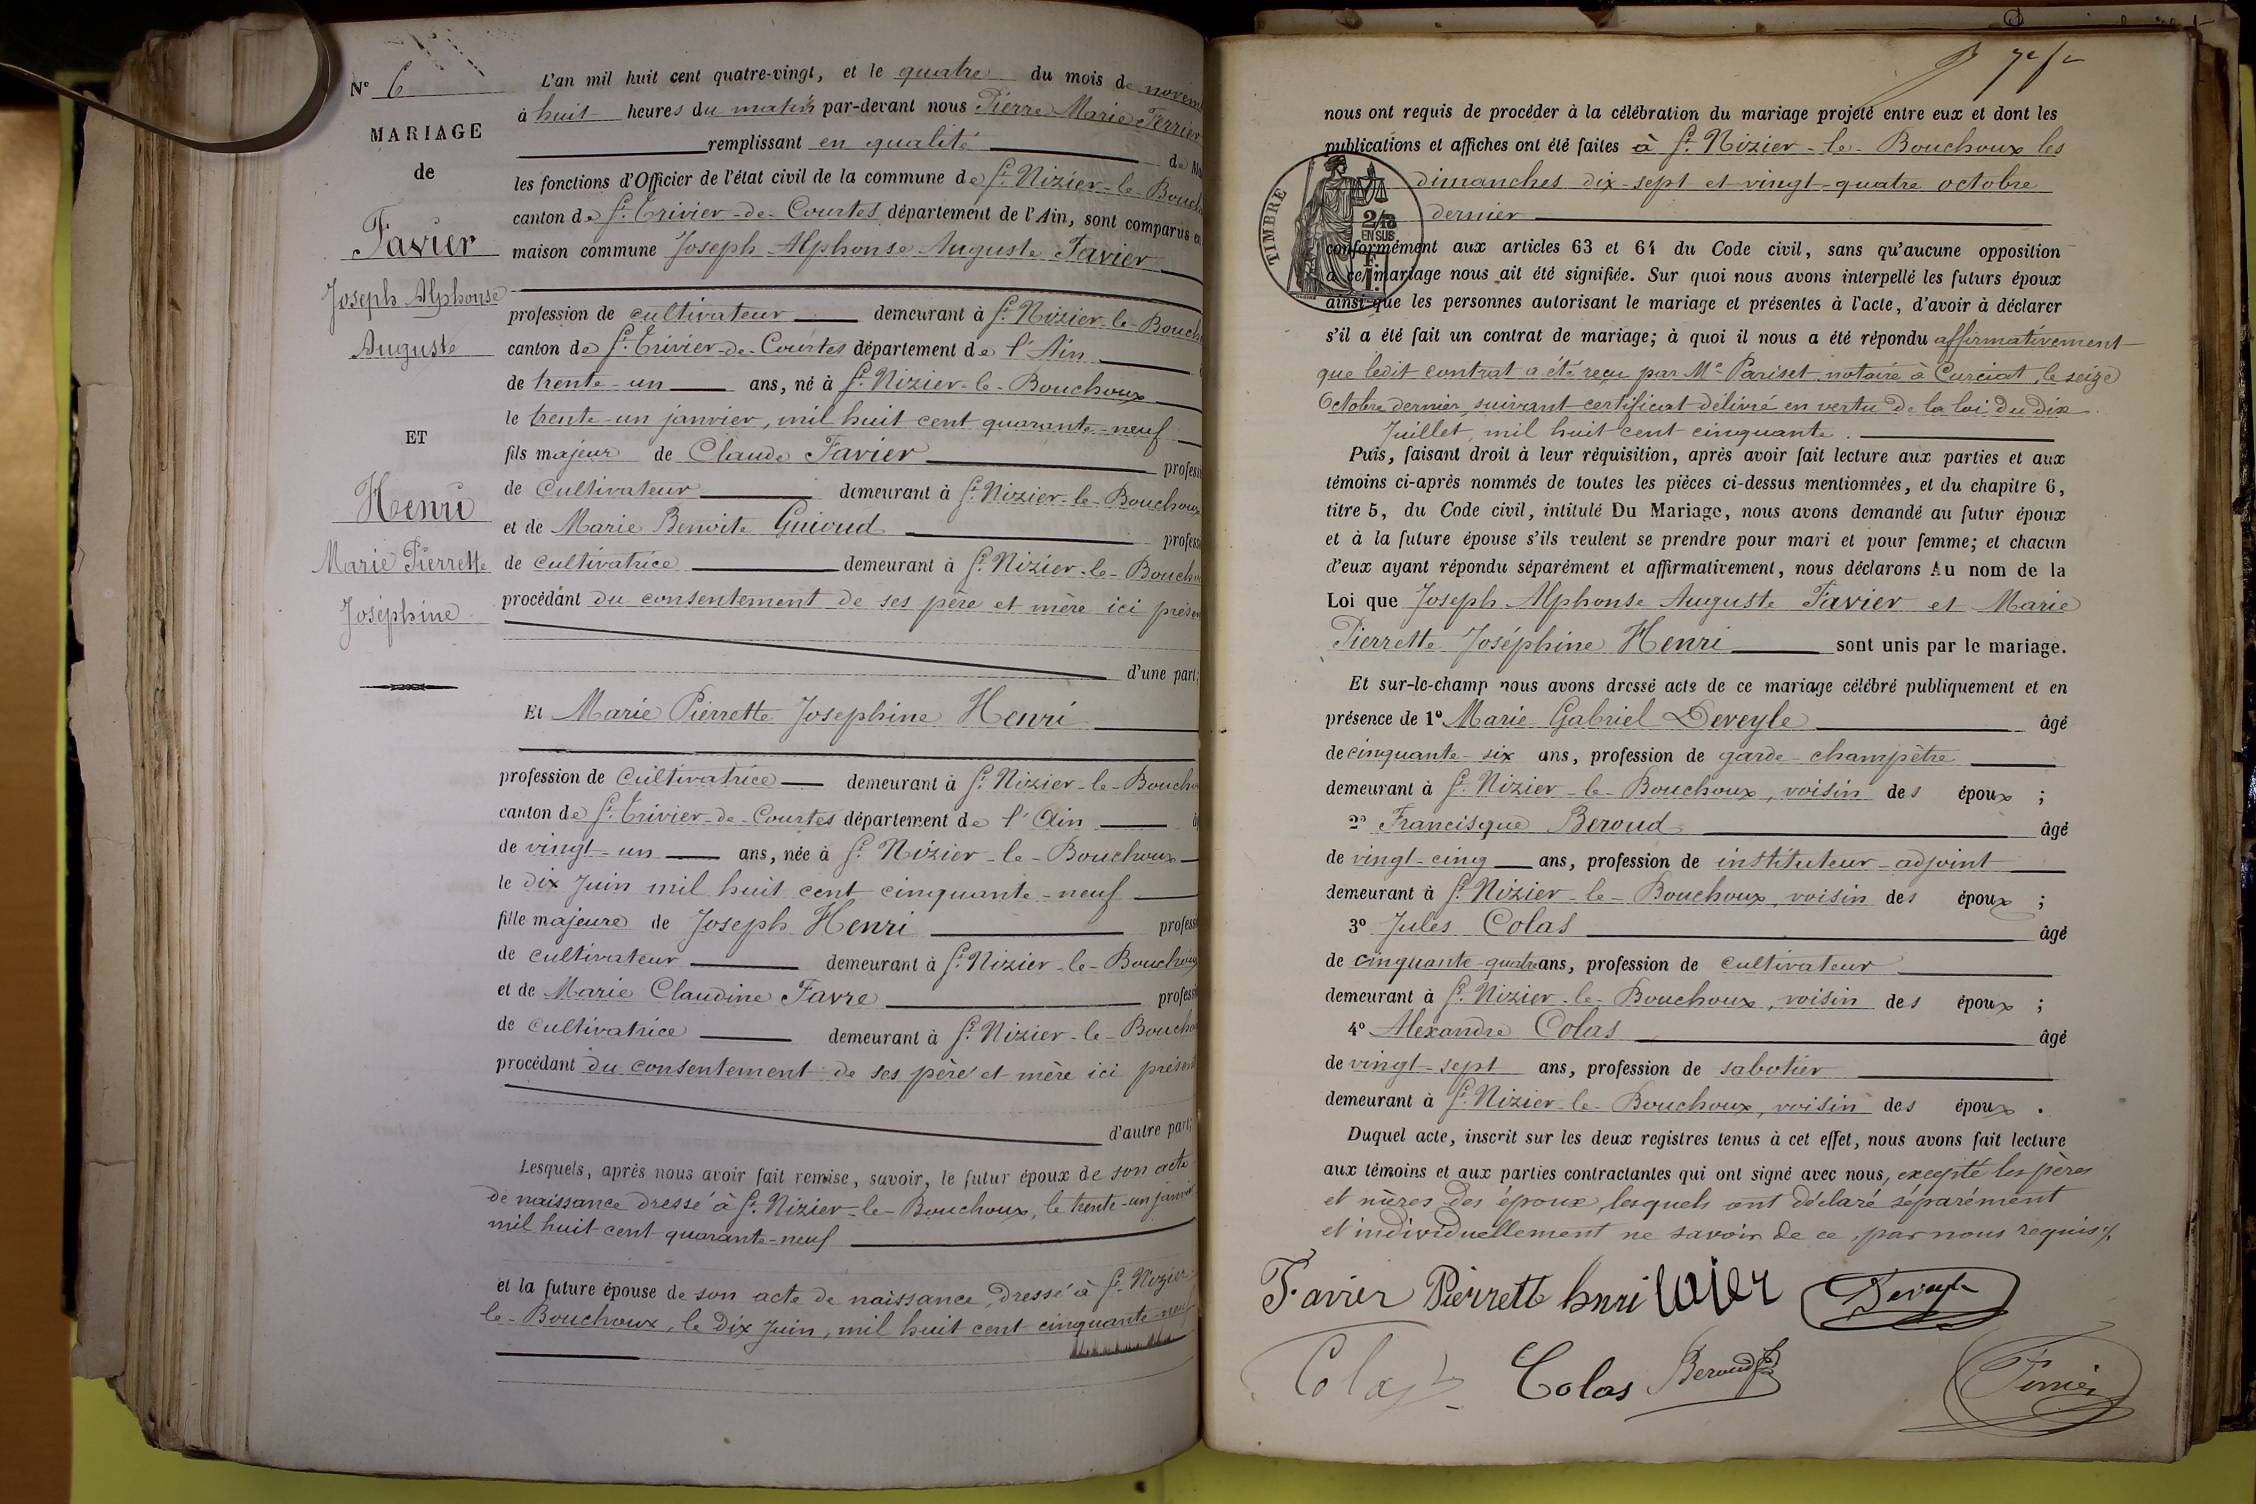 N° 6
MARIAGE
de
Favier
Joseph Alphonse
Auguste
ET
Henri
Marie Pierrette
Joséphine
L'an mil huit cent quatre-vingt, et le quatre du mois de novem
à huit heures du matin par-devant nous Pierre Marie Ferrier
remplissant en qualité de Ma
les fonctions d'Officier de l'état civil de la commune de St Nizier-le-Bouch
canton de St Trivier-de-Courtes département de l'Ain, sont comparus en
maison commune Joseph Alphonse Auguste Favier
profession de cultivateur demeurant à St Nizier-le-Bouch
canton de St Trivier-de-Courtes département de l'Ain
de trente-un ans, né à St Nizier-le-Bouchoux
le trente-un janvier, mil huit cent quarante-neuf
fils majeur de Claude Favier profess
de cultivateur demeurant à St Nizier-le-Bouchoux
et de Marie Benoite Guivud profess
de cultivatrice demeurant à St Nizier-le-Boucho
procédant du consentement de ses père et mère ici présen
d'une part;
Et Marie Pierrette Josephine Henri
profession de cultivatrice demeurant à St Nizier-le-Boucho
canton de St Trivier-de-Courtes département de l'Ain
de vingt-un ans, née à St Nizier-le-Bouchoux
le dix Juin mil huit cent cinquante-neuf
fille majeure de Joseph Henri profess
de cultivateur demeurant à St Nizier-le-Bouchoux
et de Marie Claudine Favre profess
de cultivatrice demeurant à St Nizier-le-Boucho
procédant du consentement de ses père et mère ici présent
d'autre part;
Lesquels, après nous avoir fait remise, savoir, le futur époux de son acte
de naissance dressé à St Nizier-le-Bouchoux, le trente-un janvier
mil huit cent quarante-neuf
et la future épouse de son acte de naissance, dressé à St Nizier-
le-Bouchoux, le dix Juin, mil huit cent cinquante-neuf
nous ont requis de procéder à la célébration du mariage projeté entre eux et dont les
publications et affiches ont été faites à St Nizier-le-Bouchoux les
dimanches dix-sept et vingt-quatre octobre
dernier
TIMBRE
2/10
EN SUS
conformément aux articles 63 et 64 du Code civil, sans qu'aucune opposition
à ce mariage nous ait été signifiée. Sur quoi nous avons interpellé les futurs époux
ainsi que les personnes autorisant le mariage et présentes à l'acte, d'avoir à déclarer
s'il a été fait un contrat de mariage; à quoi il nous a été répondu affirmativement
que ledit contrat a été reçu par Me Pariset, notaire à Curciat, le seize
Octobre dernier, suivant certificat délivré en vertu de la loi du dix
Juillet, mil huit cent cinquante.
Puis, faisant droit à leur réquisition, après avoir fait lecture aux parties et aux
témoins ci-après nommés de toutes les pièces ci-dessus mentionnées, et du chapitre 6,
titre 5, du Code civil, intitulé Du Mariage, nous avons demandé au futur époux
et à la future épouse s'ils veulent se prendre pour mari et pour femme; et chacun
d'eux ayant répondu séparément et affirmativement, nous déclarons Au nom de la
Loi que Joseph Alphonse Auguste Favier et Marie
Pierrette Joséphine Henri sont unis par le mariage.
Et sur-le-champ nous avons dressé acte de ce mariage célébré publiquement et en
présence de 1° Marie Gabriel Deveyle âgé
de cinquante-six ans, profession de garde-champêtre
demeurant à St Nizier-le-Bouchoux, voisin des époux ;
2° Francisque Beroud âgé
de vingt-cinq ans, profession de instituteur-adjoint
demeurant à St Nizier-le-Bouchoux, voisin des époux ;
3° Jules Colas âgé
de cinquante-quatre ans, profession de cultivateur
demeurant à St Nizier-le-Bouchoux, voisin des époux ;
4° Alexandre Colas âgé
de vingt-sept ans, profession de sabotier
demeurant à St Nizier-le-Bouchoux, voisin des époux .
Duquel acte, inscrit sur les deux registres tenus à cet effet, nous avons fait lecture
aux témoins et aux parties contractantes qui ont signé avec nous, excepté les pères
et mères des époux, lesquels ont déclaré séparément
et individuellement ne savoir de ce, par nous requis.
Favier Pierrette henri Deveyle
Colas Colas Beroud Ferrier